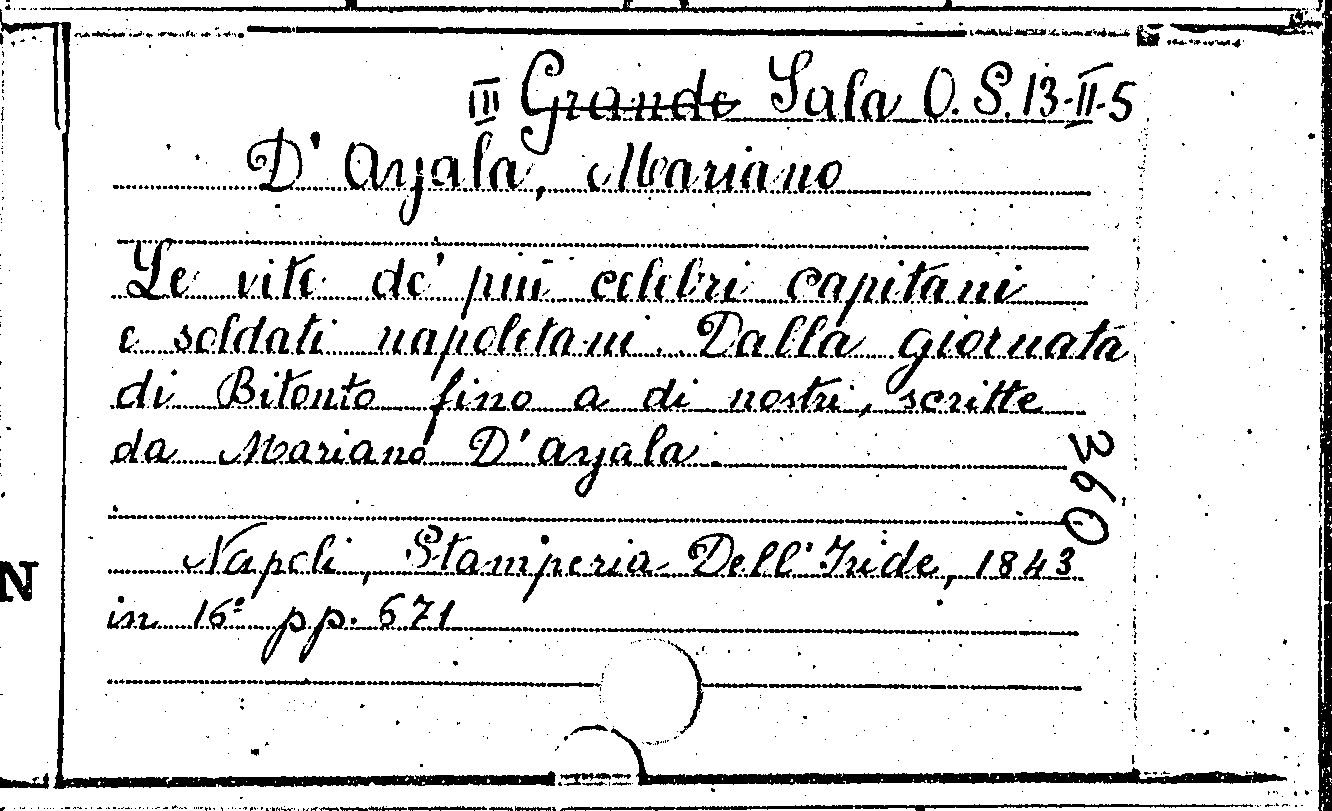 III Grande Sala O. S. 13-II-5
D' Ayala, Mariano
Le vite de' più celebri capitani
e soldati napoletani. Dalla giornata
di Bitonto fino a di nostri, scritte
da Mariano D'Ayala.
360
Napoli, Stamperia Dell'Iride, 1843
in 16° pp. 671
N